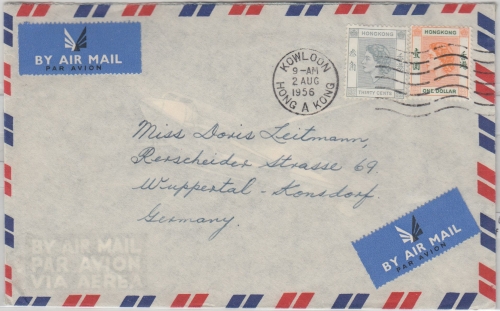 BY AIR MAIL
PAR AVION
KOWLOON
9-AM
2 AUG
1956
HONG A KONG
HONGKONG
THIRTY CENTS
HONGKONG
ONE DOLLAR
Miss Doris Leitmann,
Rerscheider Strasse 69.
Wuppertal-Konsdorf.
Germany.
BY AIR MAIL
PAR AVION
VIA AEREA
BY AIR MAIL
PAR AVION